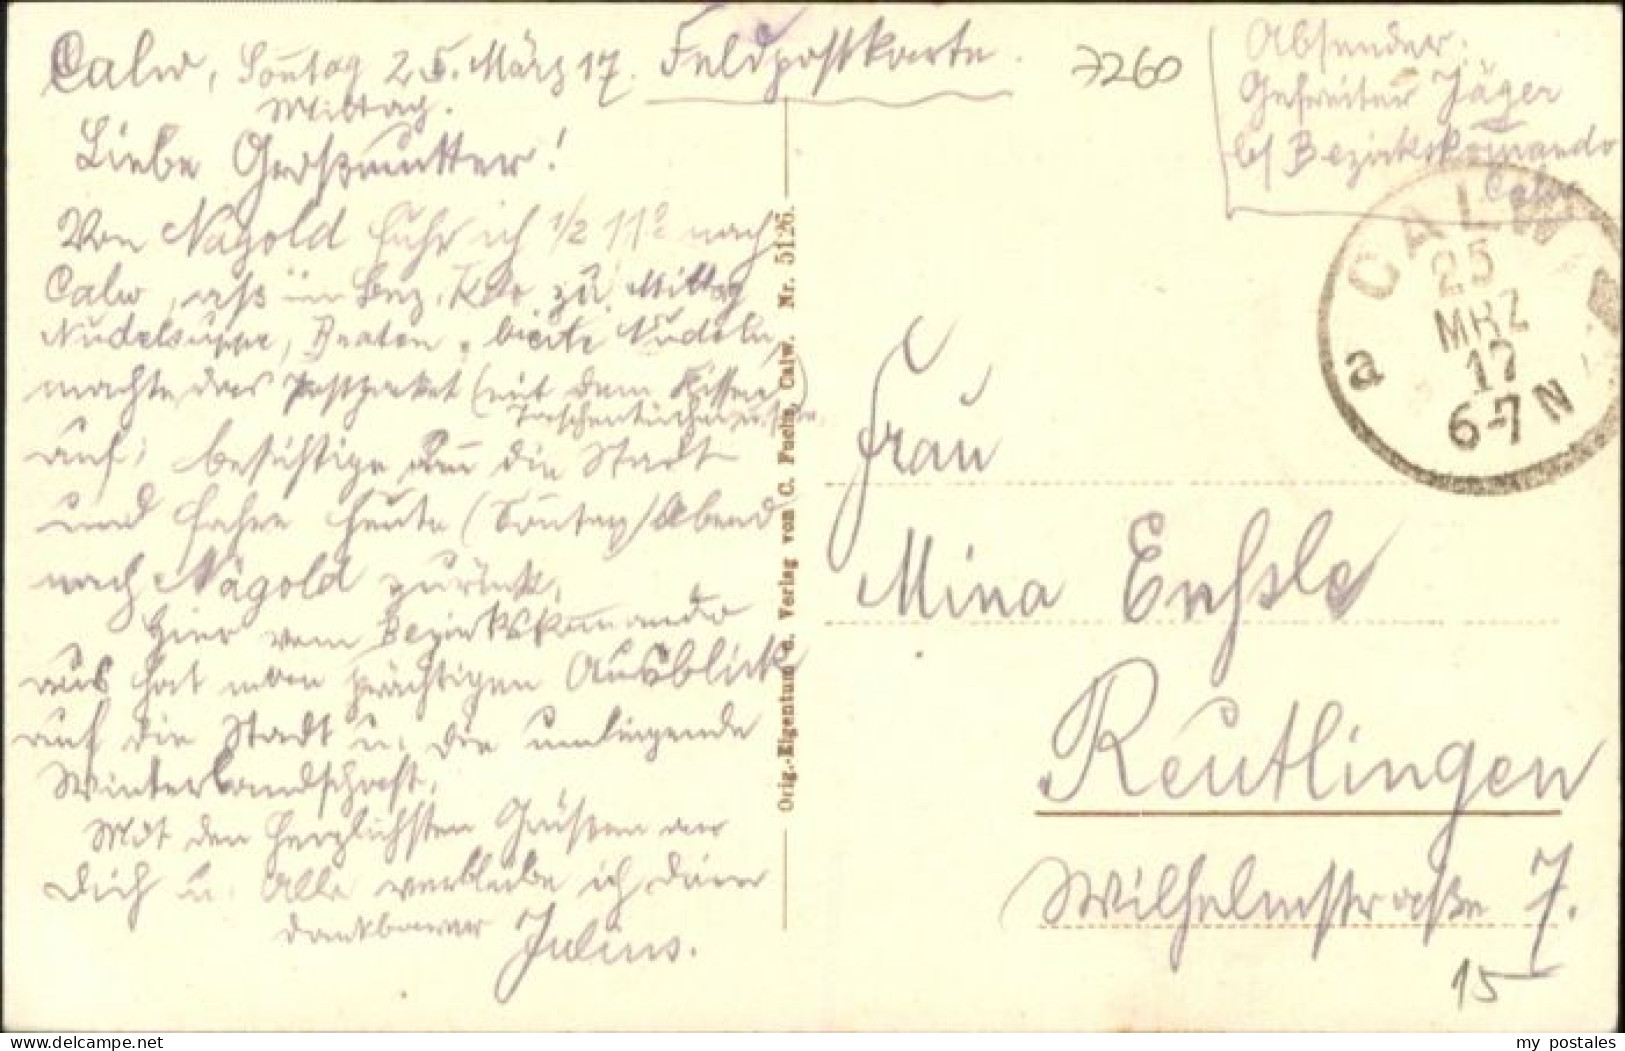 Calw, Sonntag 25. März 17. Feldpostkarte.
Mittag.
Liebe Großmutter!
Von Nagold fuhr ich 1/2 11° nach
Calw, aß im Bez. Kdo zu Mittag
Nudelsuppe, Braten, breite Nudeln,
machte das Postpaket (mit dem Kissen,
Taschentücher u.s.w.
auf, besichtige dann die Stadt
und fahre heute (Sonntag) Abend
nach Nagold zurück.
Hier vom Bezirkskommando
aus hat man prächtigen Ausblick
auf die Stadt u. die umliegende
Winterlandschaft.
Mit den herzlichsten Grüßen an
Dich u. Alle verbleibe ich Dein
dankbarer Julius.
Orig.-Eigentum u. Verlag von C. Fuchs, Calw. Nr. 5126.
7260
Absender:
Gefreiter Jäger
b/ Bezirkskommando
Calw
CALW
25
MRZ
17
6-7N
a
Frau
Mina Enßle
Reutlingen
Wilhelmstraße 7.
15
my_postales